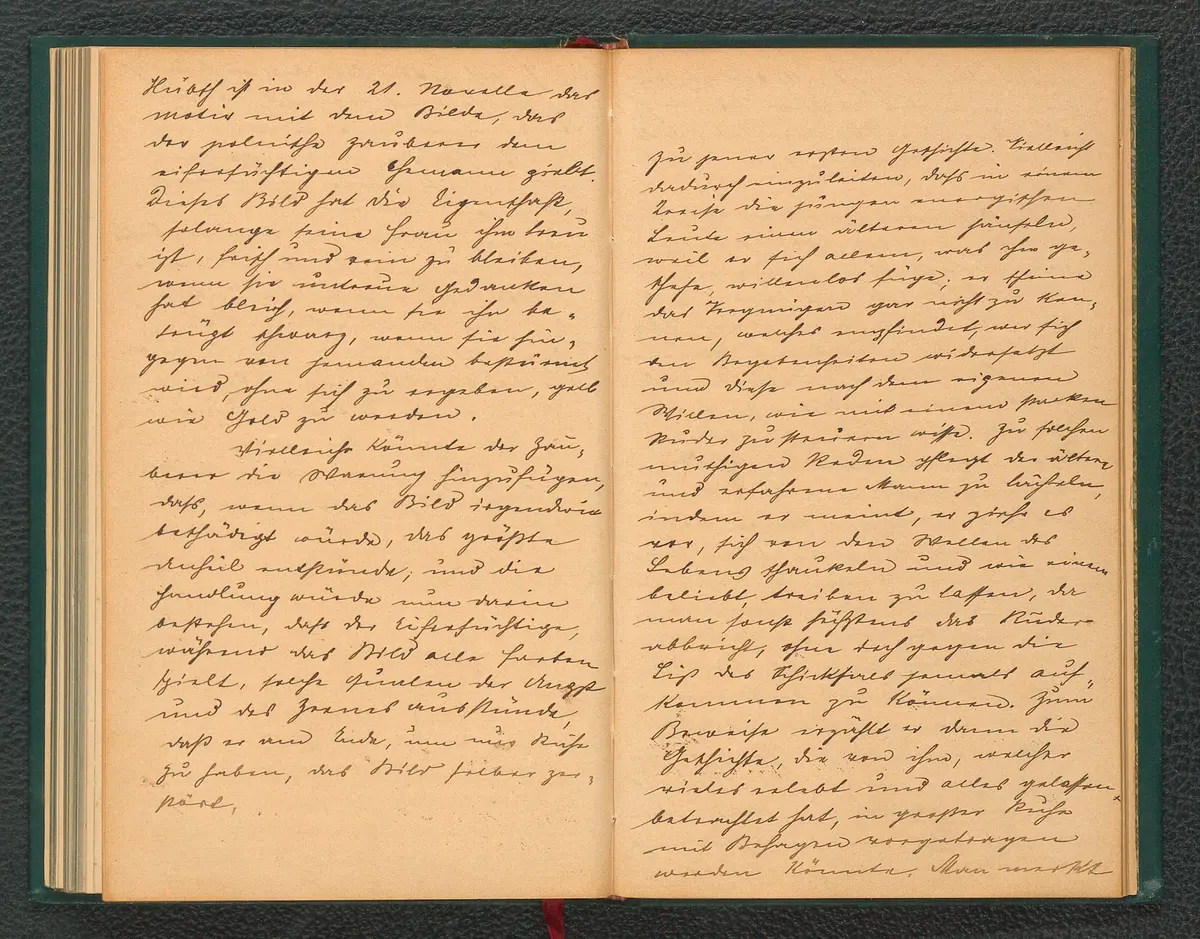 Hübsch ist in der 21. Novelle das
Motiv mit dem Bilde, das
der polnische Zauberer dem
eifersüchtigen Ehemann giebt.
Dieses Bild hat die Eigenschaft,
solange seine Frau ihm treu
ist, frisch und rein zu bleiben,
wenn sie untreue Gedanken
hat bleich, wenn sie ihn be-
trügt schwarz, wenn sie hin-
gegen von jemanden bestürmt
wird, ohne sich zu ergeben, gelb
wie Gold zu werden.
Vielleicht könnte der Zau-
berer die Warnung hinzufügen,
dass, wenn das Bild irgendwie
beschädigt würde, das größte
Unheil entstünde; und die
Handlung würde nun darin
bestehen, daß der Eifersüchtige,
während das Bild alle Farben
spielt, solche Qualen der Angst
und des Zornes ausstünde,
daß er am Ende, um nur Ruhe
zu haben, das Bild selber zer-
stört.
Zu jener ersten Geschichte. Vielleicht
dadurch einzuleiten, dass in einem
Kreise die jungen energischen
Leute einen älteren hänseln,
weil er sich allem, was ihm ge-
schehe, willenlos füge; er scheine
das Vergnügen gar nicht zu ken-
nen, welches empfindet, wer sich
den Begebenheiten widersetzt
und diese nach dem eigenen
Willen, wie mit einem starken
Ruder zu steuern wisse. Zu solchen
muthigen Reden pflegt der ältere
und erfahrene Mann zu lächeln,
indem er meint, er ziehe es
vor, sich von den Wellen des
Lebens schaukeln und wie einem
beliebt, treiben zu lassen, da
man sonst höchstens das Ruder
abbricht, ohne doch gegen die
List des Schicksals jemals auf-
kommen zu können. Zum
Beweise erzählt er dann die
Geschichte, die von ihm, welcher
vieles erlebt und alles gelassen
betrachtet hat, in großer Ruhe
mit Behagen vorgetragen
werden könnte. Man merkt